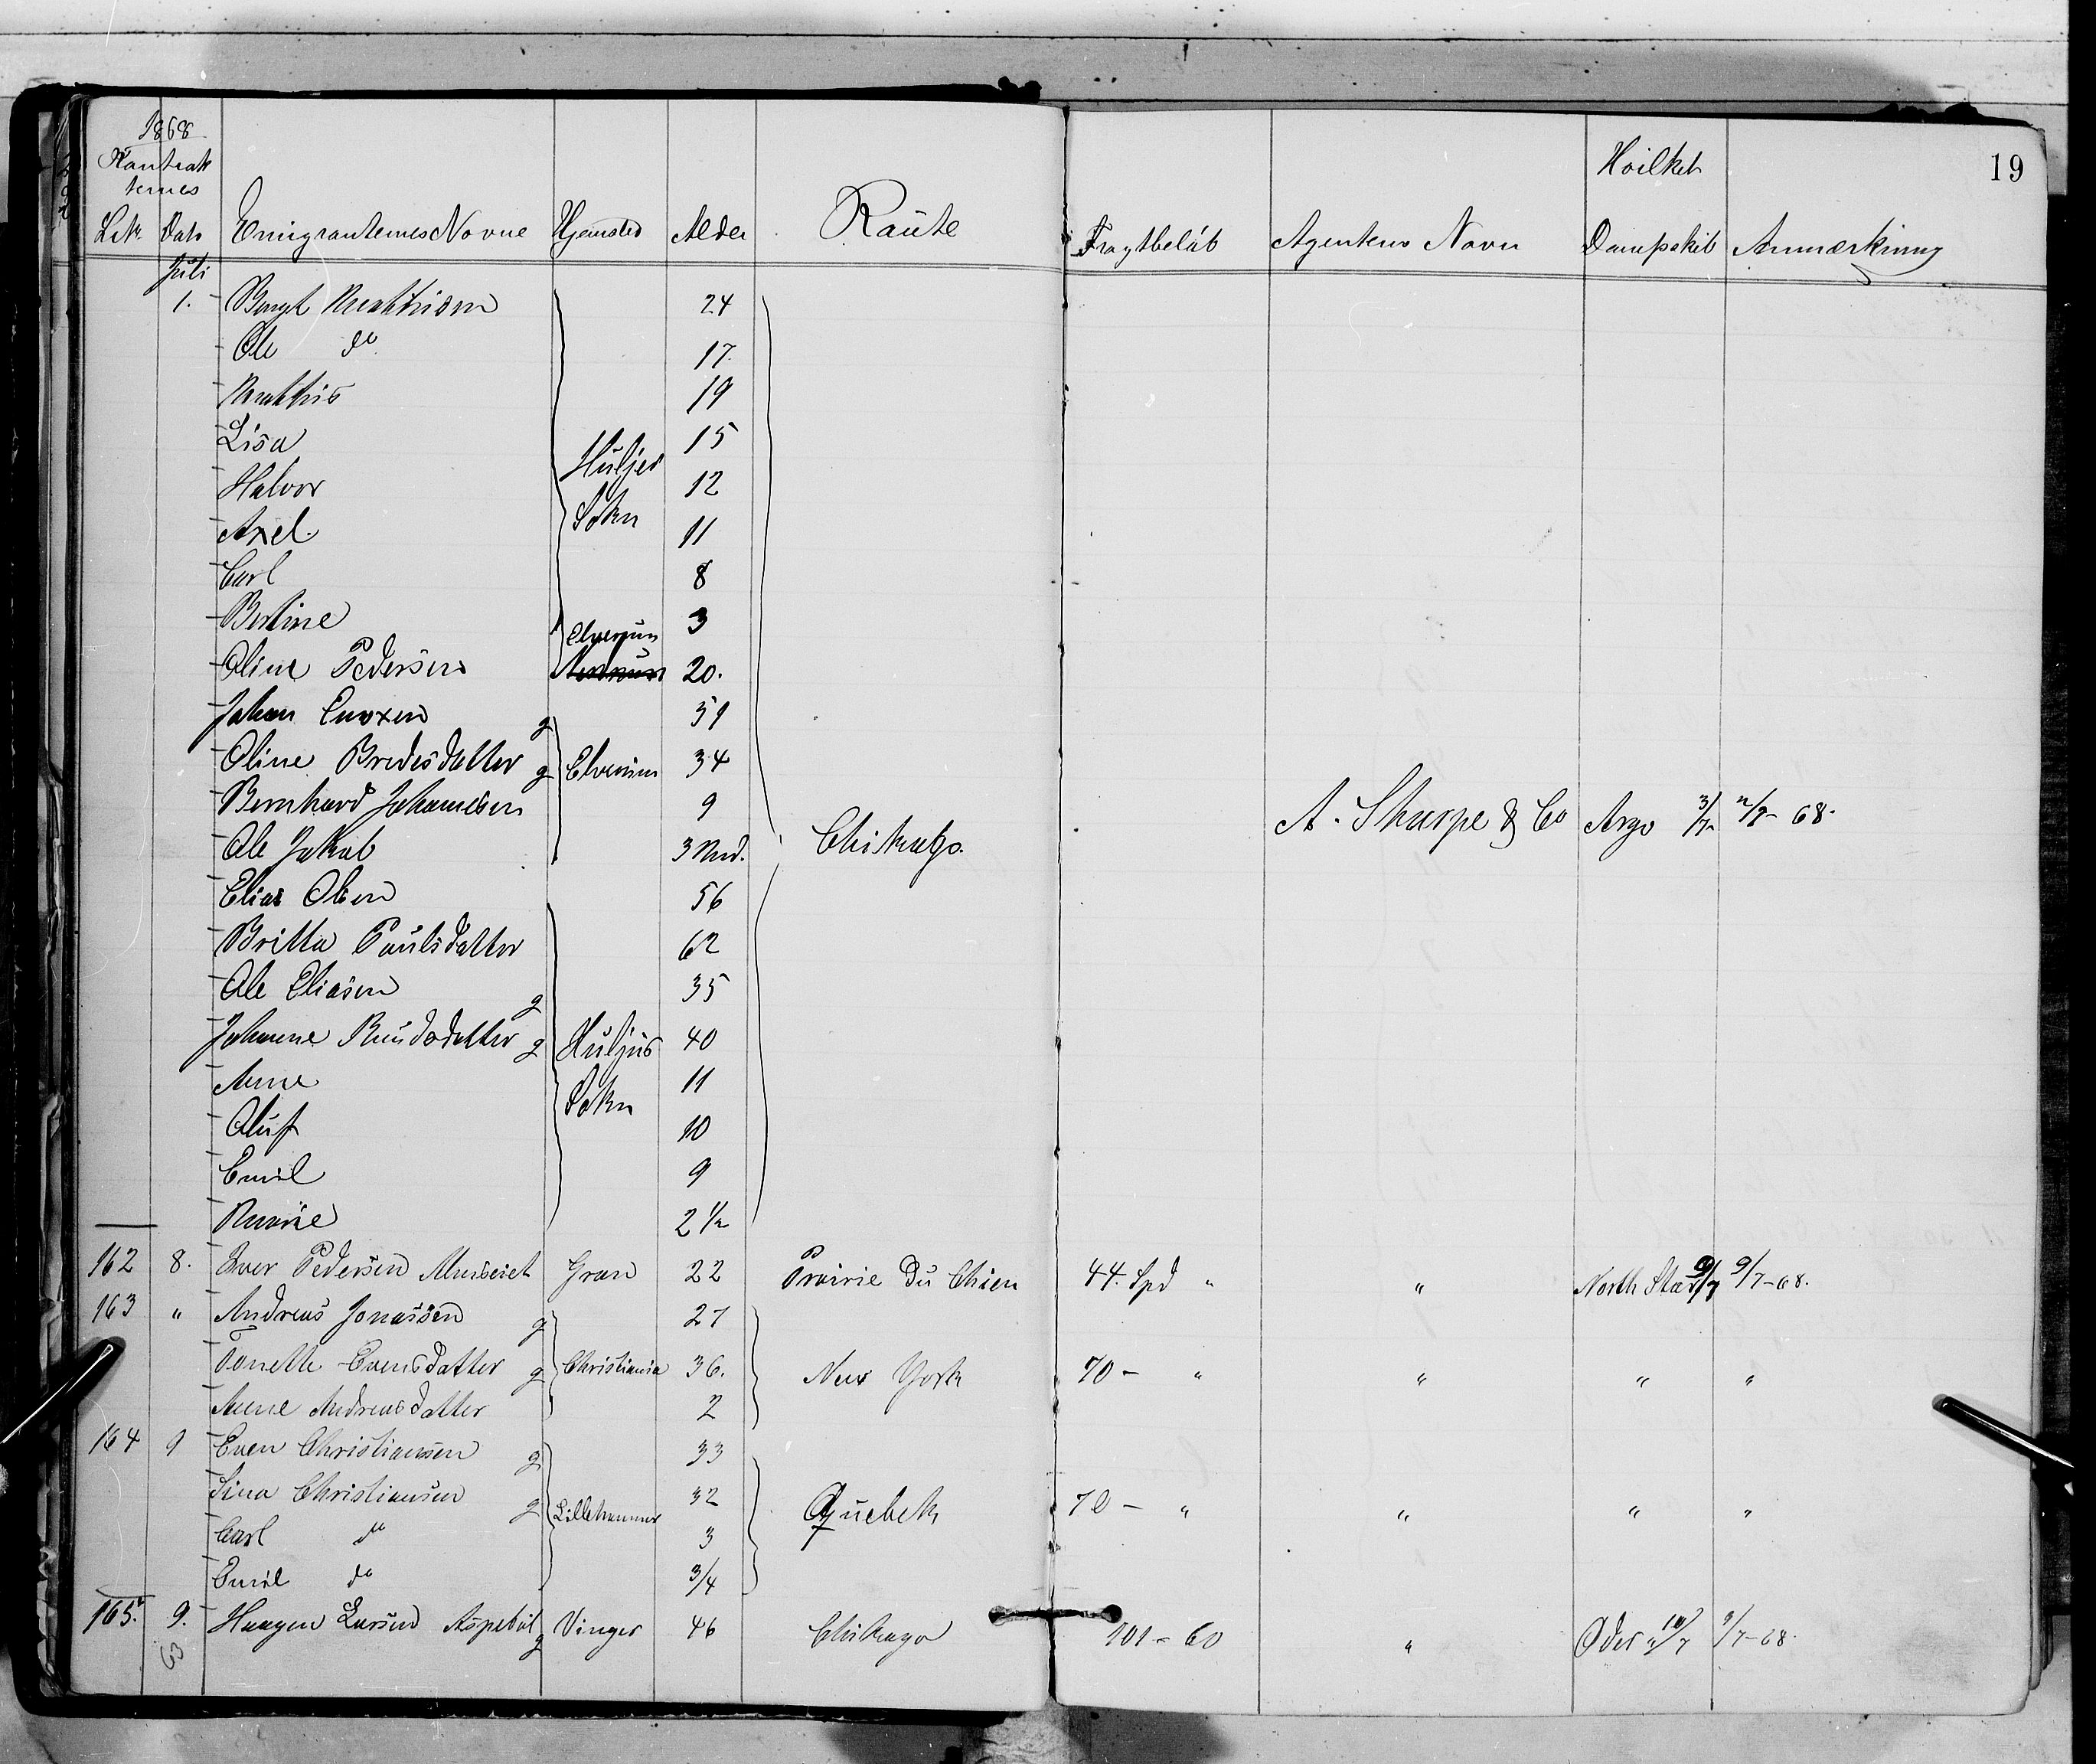 1868
19
Kontrak
ternes
Hvilket
Litr. Dato Emigranternes Navne Hjemsted Alder Raute Fragtbeløb Agentens Navn Dampskib Anmærkning
Juli
1. Bengt Mathisen 24
Ole do 17.
Mathis 19
Lisa 15
Huljes
Halvor 12
Sokn
Axel 11
Carl 8
Bertine 3
Elverum
Oline Pedersen 20.
Johan 59
Oline Bredesdatter g Elverum 34
Bernhard Johannesen 9
A. Sharpe & Co Argo 3/7 2/7- 68.
Ole Jakob 3 Md. Chikago.
Elias Olsen 56
Britta Paulsdatter 62
Ole Eliasen g 35
Johanne Knudsdatter g Huljes 40
Anne 11
Sokn
Oluf 10
Emil 9
Marie 2 1/2
162 8. Iver Pedersen Gran 22 Prairie du Chien 44. Spd " " North Star 9/7 9/7-68.
163 " Andreas Jonassen g 27
Tonette Evensdatter g Christiania 36. New York 70 - " " " "
Anne Andreasdatter 2
164 9 Even Christiansen g 33
Sina Christiansen g Lillehammer 32 Quebek 70 - " " " "
Carl do 3
Emil do 3/4
165. 9. Haagen Larsen Aspebøl g Vinger 46 Chikago 101 - 60 " Oder 10/7 9/7-68.
63